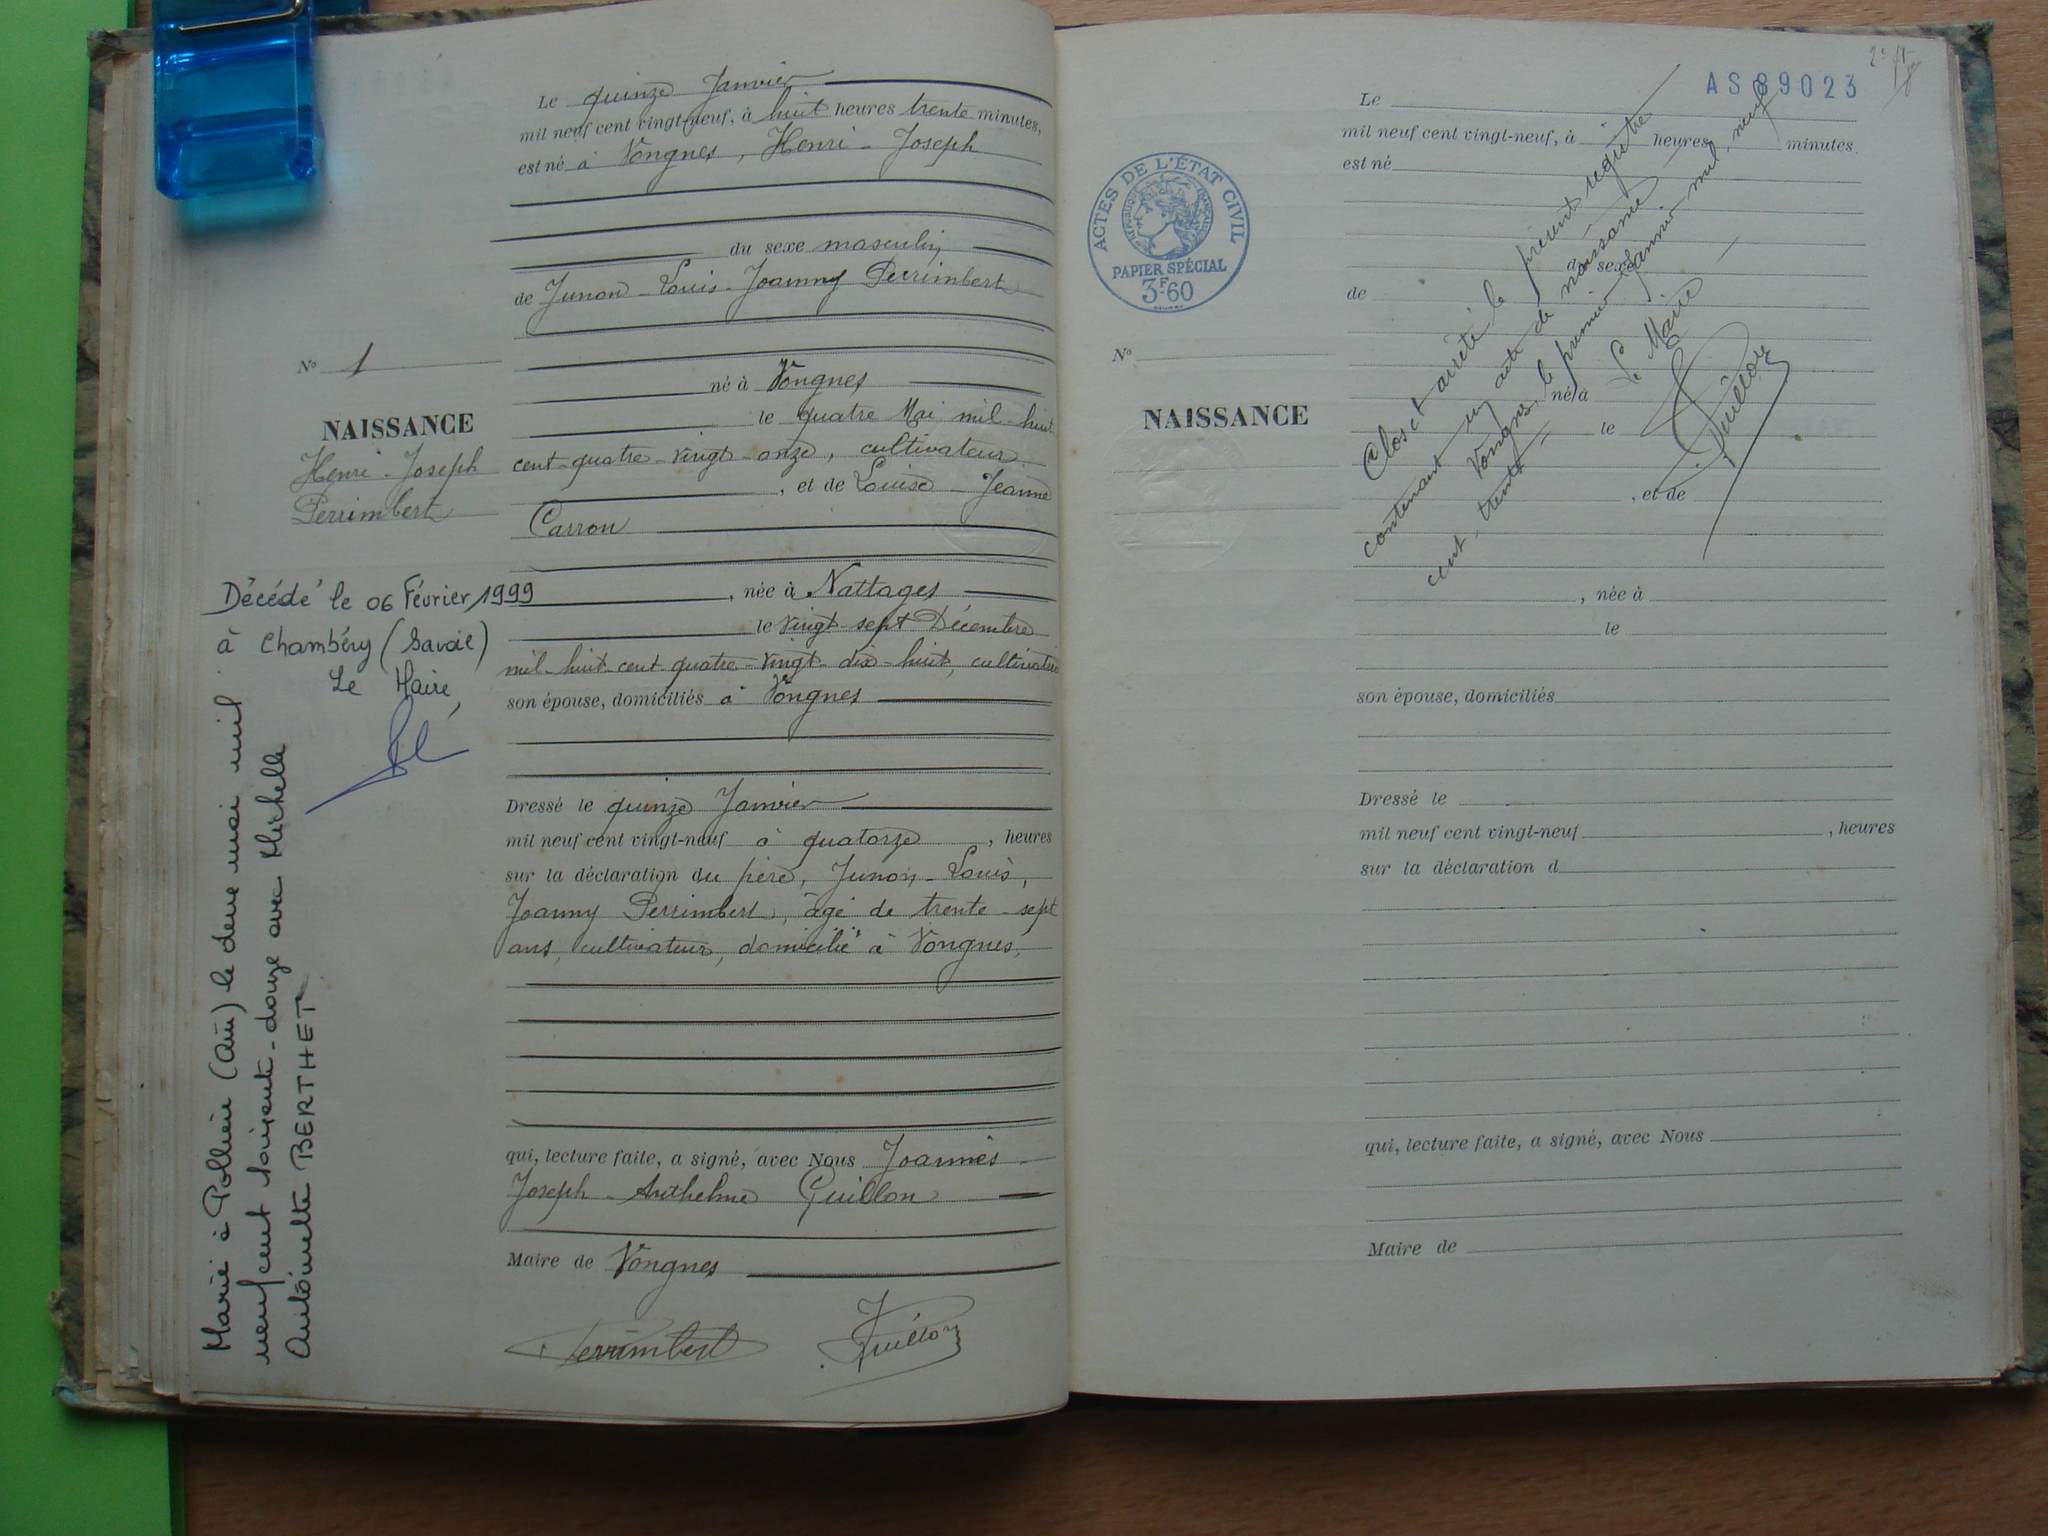 Le quinze Janvier
mil neuf cent vingt-neuf, à huit heures trente minutes,
est né à Vongnes, Henri-Joseph
du sexe masculin
de Junon-Louis-Joanny Perrimbert
N° 1
né à Vongnes
le quatre Mai mil-huit
NAISSANCE
Henri-Joseph
Perrimbert
cent-quatre-vingt-onze, cultivateur
, et de Louise-Jeanne
Carron
Décédé le 06 Février 1999
à Chambéry (Savoie)
Le Maire,
, née à Nattages
le vingt-sept Décembre
mil-huit-cent-quatre-vingt-dix-huit,
son épouse, domiciliés à Vongnes
Marié à Pollieu (Ain) le deux mai mil
neuf cent soixante-douze avec Michelle
Antoinette BERTHET
Dressé le quinze Janvier
mil neuf cent vingt-neuf à quatorze, heures
sur la déclaration du père, Junon-Louis,
Joanny Perrimbert, âgé de trente-sept
ans, cultivateur, domicilié à Vongnes,
qui, lecture faite, a signé, avec Nous Joannès
Joseph-Anthelme Guillon
Maire de Vongnes
Perrimbert
Guillon
AS 89023
ACTES DE L'ÉTAT CIVIL
RÉPUBLIQUE FRANÇAISE
PAPIER SPÉCIAL
3F60
Le
mil neuf cent vingt-neuf, à heures minutes
est né
du sexe
de
N°
né à
NAISSANCE
le
, et de
, née à
le
son épouse, domiciliés
Dressé le
mil neuf cent vingt-neuf , heures
sur la déclaration d
qui, lecture faite, a signé, avec Nous
Maire de
Clos et arrêté le présent registre
contenant un acte de naissance
Vongnes, le premier Janvier mil, neuf
cent, trente
Le Maire
Guillon